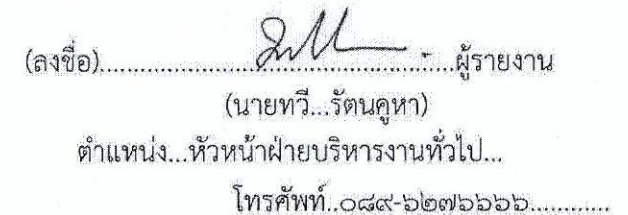 (ลงชื่อ)..................................................ผู้รายงาน
(นายทวี...รัตนคูหา)
ตำแหน่ง...หัวหน้าฝ่ายบริหารงานทั่วไป...
โทรศัพท์..๐๘๙-๖๒๗๖๖๖๖............